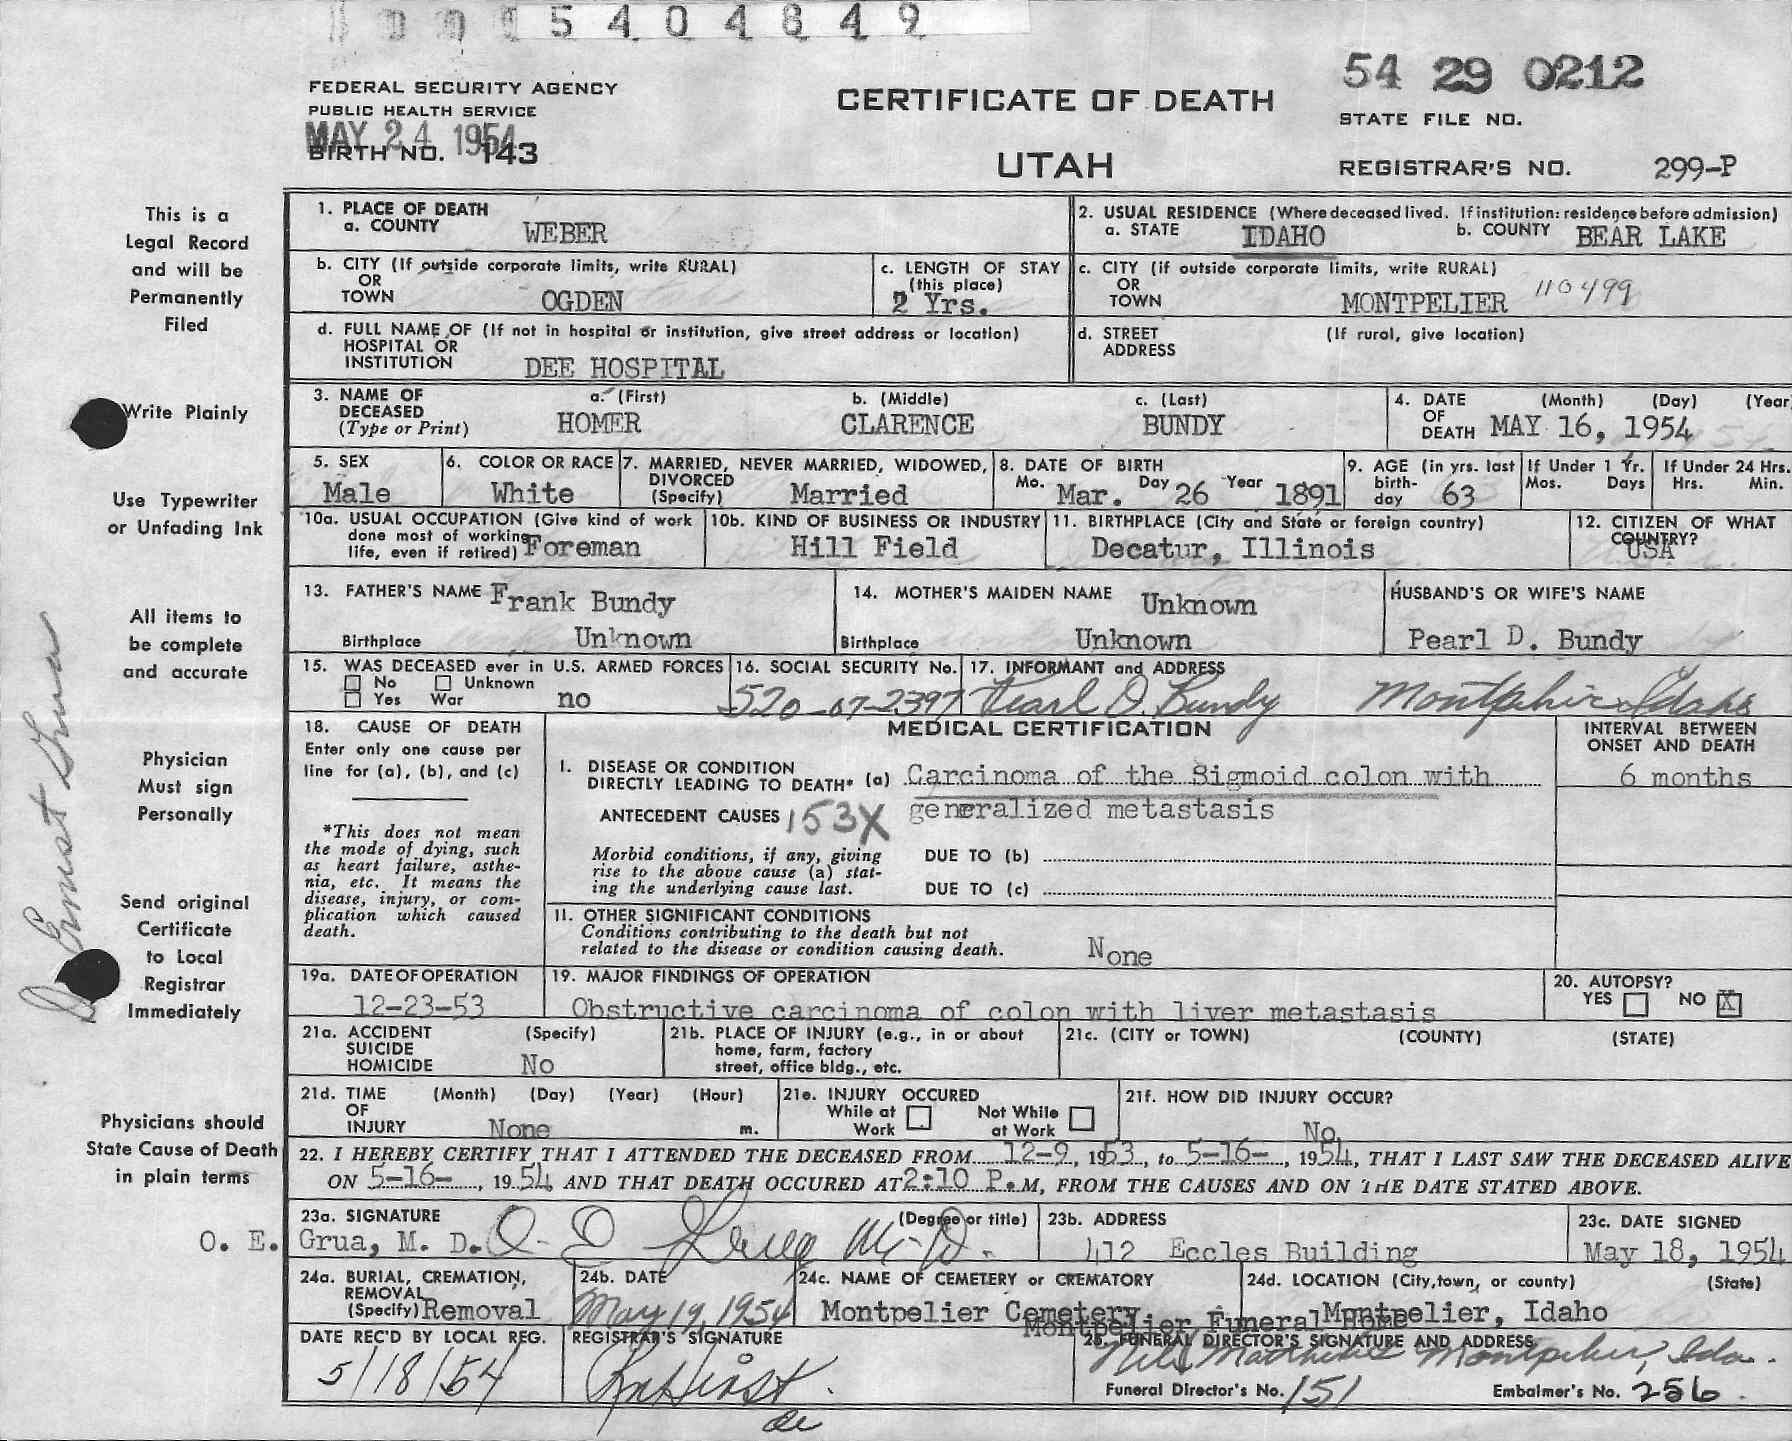 5404849
54 29 0212
FEDERAL SECURITY AGENCY
PUBLIC HEALTH SERVICE
CERTIFICATE OF DEATH
STATE FILE NO.
MAY 24 1954
BIRTH NO. 143
UTAH
REGISTRAR'S NO. 299-P
This is a
Legal Record
and will be
Permanently
Filed
Write Plainly
Use Typewriter
or Unfading Ink
All items to
be complete
and accurate
Physician
Must sign
Personally
Send original
Certificate
to Local
Registrar
Immediately
Physicians should
State Cause of Death
in plain terms
Ernest Grua
1. PLACE OF DEATH
a. COUNTY WEBER
2. USUAL RESIDENCE (Where deceased lived. If institution: residence before admission)
a. STATE IDAHO b. COUNTY BEAR LAKE
b. CITY (If outside corporate limits, write RURAL)
OR
TOWN OGDEN
c. LENGTH OF STAY
(this place)
2 Yrs.
c. CITY (if outside corporate limits, write RURAL)
OR
TOWN MONTPELIER 110499
d. FULL NAME OF (If not in hospital or institution, give street address or location)
HOSPITAL OR
INSTITUTION DEE HOSPITAL
d. STREET (If rural, give location)
ADDRESS
3. NAME OF a. (First) b. (Middle) c. (Last)
DECEASED
(Type or Print) HOMER CLARENCE BUNDY
4. DATE (Month) (Day) (Year
OF
DEATH MAY 16, 1954
5. SEX
Male
6. COLOR OR RACE
White
7. MARRIED, NEVER MARRIED, WIDOWED,
DIVORCED
(Specify) Married
8. DATE OF BIRTH
Mo. Mar. Day 26 Year 1891
9. AGE (in yrs. last
birth-
day 63
If Under 1 Yr.
Mos. Days
If Under 24 Hrs.
Hrs. Min.
10a. USUAL OCCUPATION (Give kind of work
done most of working
life, even if retired) Foreman
10b. KIND OF BUSINESS OR INDUSTRY
Hill Field
11. BIRTHPLACE (City and State or foreign country)
Decatur, Illinois
12. CITIZEN OF WHAT
COUNTRY?
USA
13. FATHER'S NAME Frank Bundy
Birthplace Unknown
14. MOTHER'S MAIDEN NAME Unknown
Birthplace Unknown
HUSBAND'S OR WIFE'S NAME
Pearl D. Bundy
15. WAS DECEASED ever in U.S. ARMED FORCES
No Unknown
Yes War no
16. SOCIAL SECURITY No.
520-07-2397
17. INFORMANT and ADDRESS
Pearl D. Bundy Montpelier Idaho
18. CAUSE OF DEATH
Enter only one cause per
line for (a), (b), and (c)
*This does not mean
the mode of dying, such
as heart failure, asthe-
nia, etc. It means the
disease, injury, or com-
plication which caused
death.
MEDICAL CERTIFICATION
INTERVAL BETWEEN
ONSET AND DEATH
I. DISEASE OR CONDITION
DIRECTLY LEADING TO DEATH* (a) Carcinoma of the Sigmoid colon with
6 months
ANTECEDENT CAUSES 153X generalized metastasis
Morbid conditions, if any, giving
rise to the above cause (a) stat-
ing the underlying cause last.
DUE TO (b)
DUE TO (c)
II. OTHER SIGNIFICANT CONDITIONS
Conditions contributing to the death but not
related to the disease or condition causing death. None
19a. DATE OF OPERATION
12-23-53
19. MAJOR FINDINGS OF OPERATION
Obstructive carcinoma of colon with liver metastasis
20. AUTOPSY?
YES NO X
21a. ACCIDENT (Specify)
SUICIDE
HOMICIDE No
21b. PLACE OF INJURY (e.g., in or about
home, farm, factory
street, office bldg., etc.
21c. (CITY or TOWN) (COUNTY) (STATE)
21d. TIME (Month) (Day) (Year) (Hour)
OF
INJURY None m.
21e. INJURY OCCURED
While at Work Not While at Work
21f. HOW DID INJURY OCCUR?
No
22. I HEREBY CERTIFY THAT I ATTENDED THE DECEASED FROM 12-9, 1953, to 5-16-, 1954, THAT I LAST SAW THE DECEASED ALIVE
ON 5-16-, 1954 AND THAT DEATH OCCURED AT 2:10 P.M, FROM THE CAUSES AND ON THE DATE STATED ABOVE.
23a. SIGNATURE (Degree or title)
O. E. Grua, M. D. O. E. Grua M.D.
23b. ADDRESS
412 Eccles Building
23c. DATE SIGNED
May 18, 1954
24a. BURIAL, CREMATION,
REMOVAL
(Specify) Removal
24b. DATE
May 19, 1954
24c. NAME OF CEMETERY or CREMATORY
Montpelier Cemetery
24d. LOCATION (City, town, or county) (State)
Montpelier, Idaho
DATE REC'D BY LOCAL REG.
5/18/54
REGISTRAR'S SIGNATURE
Montpelier Funeral Home
25. FUNERAL DIRECTOR'S SIGNATURE AND ADDRESS
Montpelier, Ida.
Funeral Director's No. 151 Embalmer's No. 256